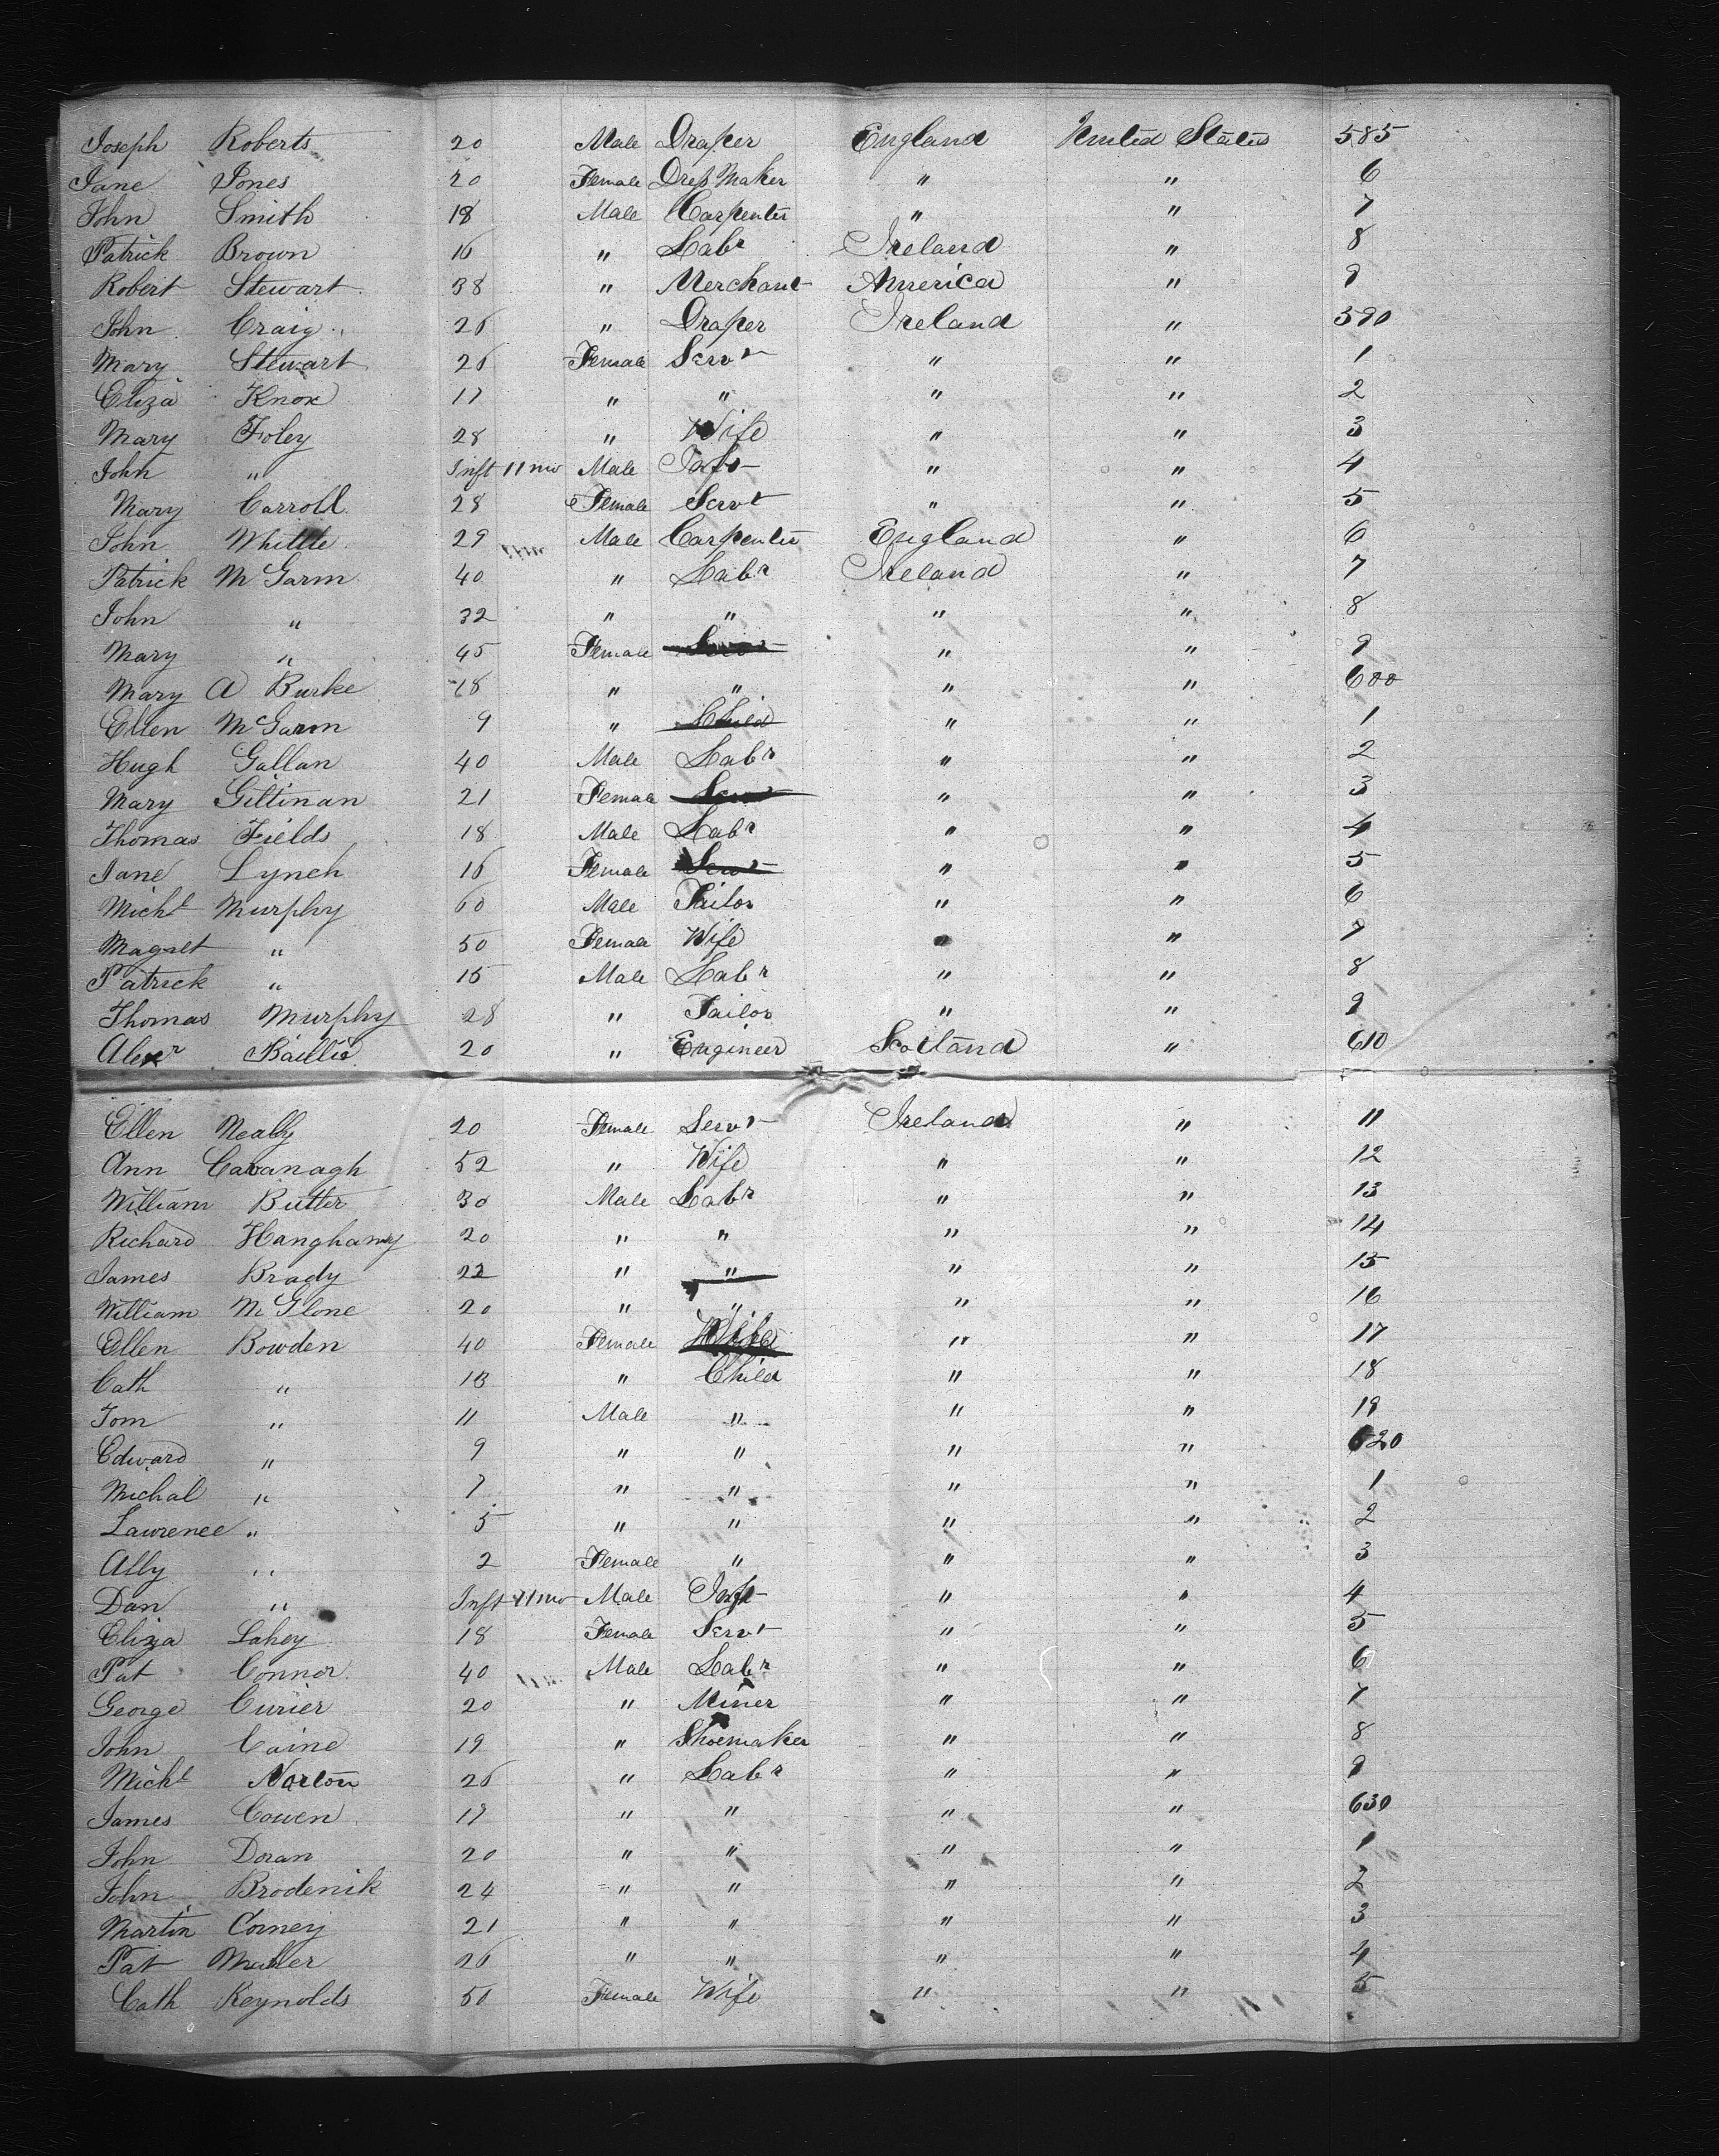 Joseph Roberts 20 Male Draper England United States 585
Jane Jones 20 Female Dress Maker " " 6
John Smith 18 Male Carpenter " " 7
Patrick Brown 16 " Labr Ireland " 8
Robert Stewart 38 " Merchant America " 9
John Craig 26 " Draper Ireland " 590
Mary Stewart 26 Female Servt " " 1
Eliza Knox 17 " " " " 2
Mary Foley 28 " Wife " " 3
John " Inft 11 mo Male Inft " " 4
Mary Carroll 28 Female Servt " " 5
John Whittle 29 Male Carpenter England " 6
Patrick McGarm 40 " Labr Ireland " 7
John " 32 " " " " 8
Mary " 45 Female Servt " " 9
Mary A Burke 18 " " " " 600
Ellen McGarm 9 " Child " " 1
Hugh Gallan 40 Male Labr " " 2
Mary Giltinan 21 Female Servt " " 3
Thomas Fields 18 Male Labr " " 4
Jane Lynch 16 Female Servt " " 5
Michl Murphy 60 Male Tailor " " 6
Magret " 50 Female Wife " " 7
Patrick " 15 Male Labr " " 8
Thomas Murphy 28 " Tailor " " 9
Alexr Baillie 20 " Engineer Scotland " 610
Ellen Neally 20 Female Servt Ireland " 11
Ann Cavanagh 52 " Wife " " 12
William Butler 30 Male Labr " " 13
Richard 20 " " " " 14
James Brady 22 " " " " 15
William McGlone 20 " " " " 16
Ellen Bowden 40 Female Wife " " 17
Cath " 13 " Child " " 18
Tom " 11 Male " " " 19
Edward " 9 " " " " 620
Michal " 7 " " " " 1
Lawrence " 5 " " " " 2
Ally " 2 Female " " " 3
Dan " Inft 11 mo Male Inft " " 4
Eliza Lahey 18 Female Servt " " 5
Pat Connor 40 Male Labr " " 6
George Curier 20 " Miner " " 7
John Caine 19 " Shoemaker " " 8
Michl Norton 26 " Labr " " 9
James Cowen 17 " " " " 630
John Doran 20 " " " " 1
John Brodenik 24 " " " " 2
Martin Corney 21 " " " " 3
Pat Maher 26 " " " " 4
Cath Reynolds 50 Female Wife " " 5